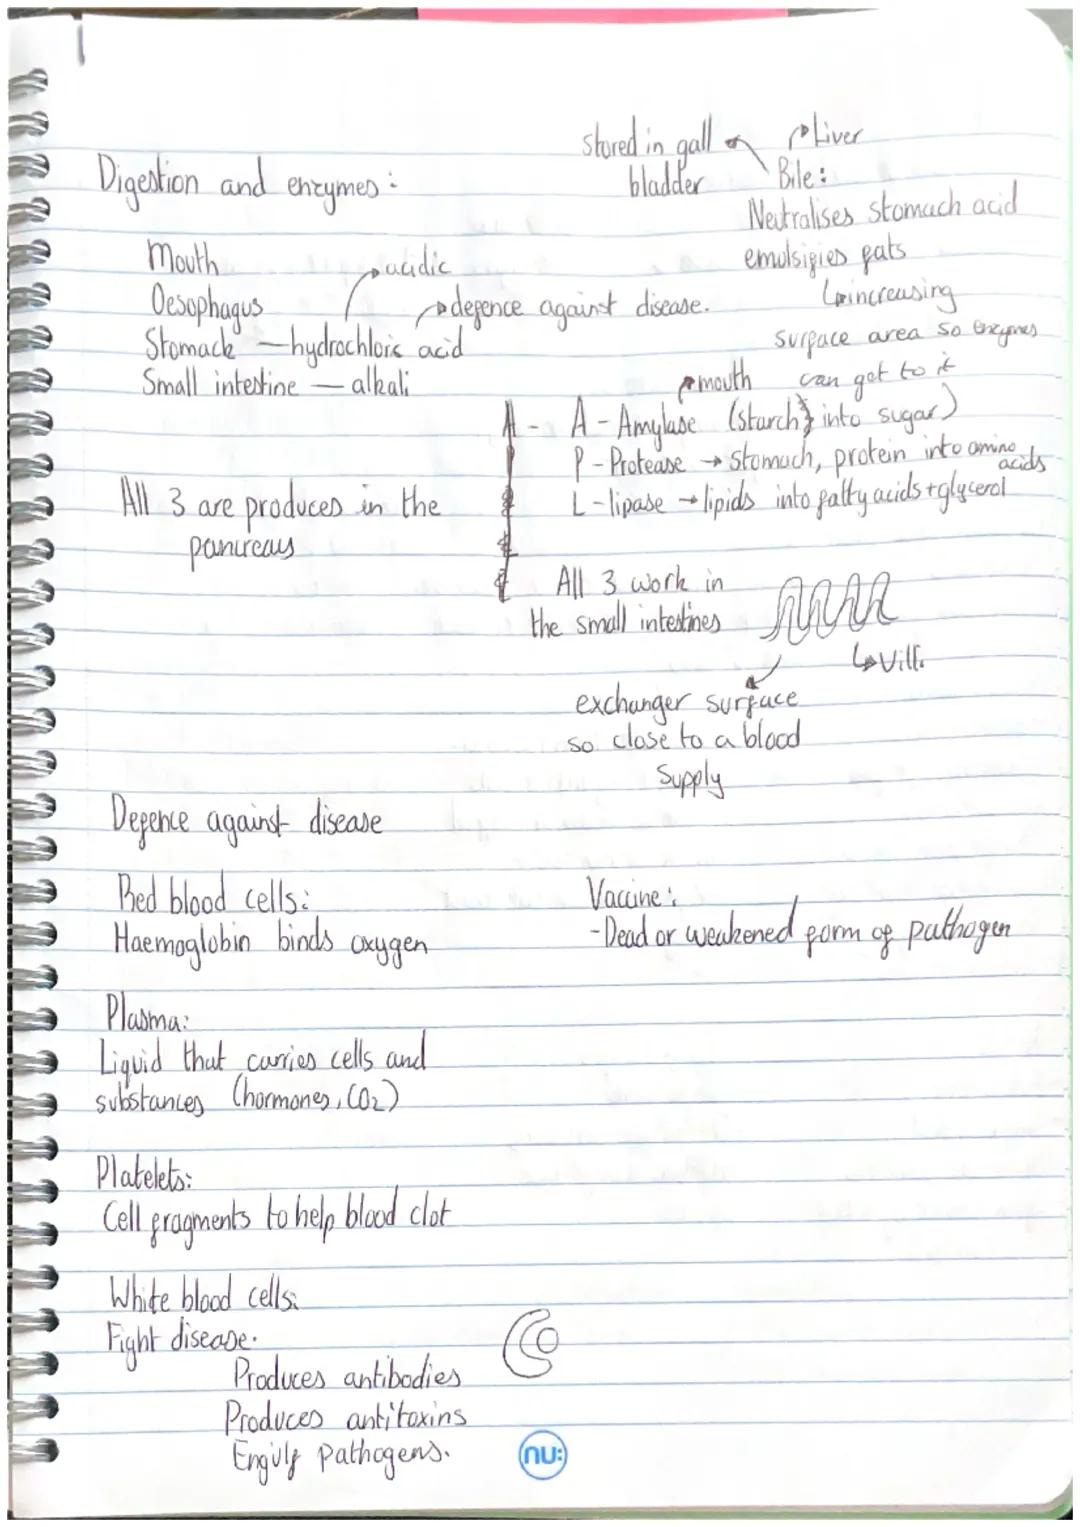 Digestion and enzymes:
stored in gall
bladder
Liver
Bile:
Neutralises stomach acid
emulsifies fats
increasing
surface area so enzymes
can get to it
Mouth
Oesophagus
Stomack — hydrochloric acid
acidic
defence against disease.
Small intestine — alkali
mouth
A - A - Amylase (starch into sugar)
P - Protease → Stomach, protein into amino
acids
L - lipase → lipids into fatty acids + glycerol
All 3 are produces in the
pancreas
All 3 work in
the small intestines
Villi
exchanger surface
so close to a blood
supply
Defence against disease
Red blood cells:
Haemoglobin binds oxygen
Vaccine:
- Dead or weakened form of pathogen
Plasma:
Liquid that carries cells and
substances (hormones, CO2)
Platelets:
Cell fragments to help blood clot
White blood cells:
Fight disease.
Produces antibodies
Produces antitoxins
Engulf pathogens.
nu: